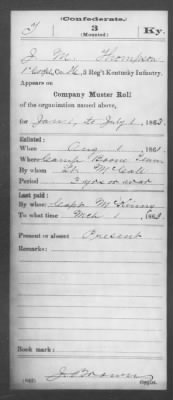 (Confederate.)
T 3 Ky.
(Mounted)
J. M. Thompson
1" Corpl, Co. H, 3 Reg't Kentucky Infantry.
Appears on
Company Muster Roll
of the organization named above,
for Jan 1, to July 1, 1863.
Enlisted:
When Aug 1, 1861
Where Camp Boone Tenn
By whom Lt. McCall
Period 3 yrs or war
Last paid:
By whom Capt
To what time Mch 1, 1863
Present or absent Present
Remarks:
Book mark:
(642) J. Brown
Copyist.